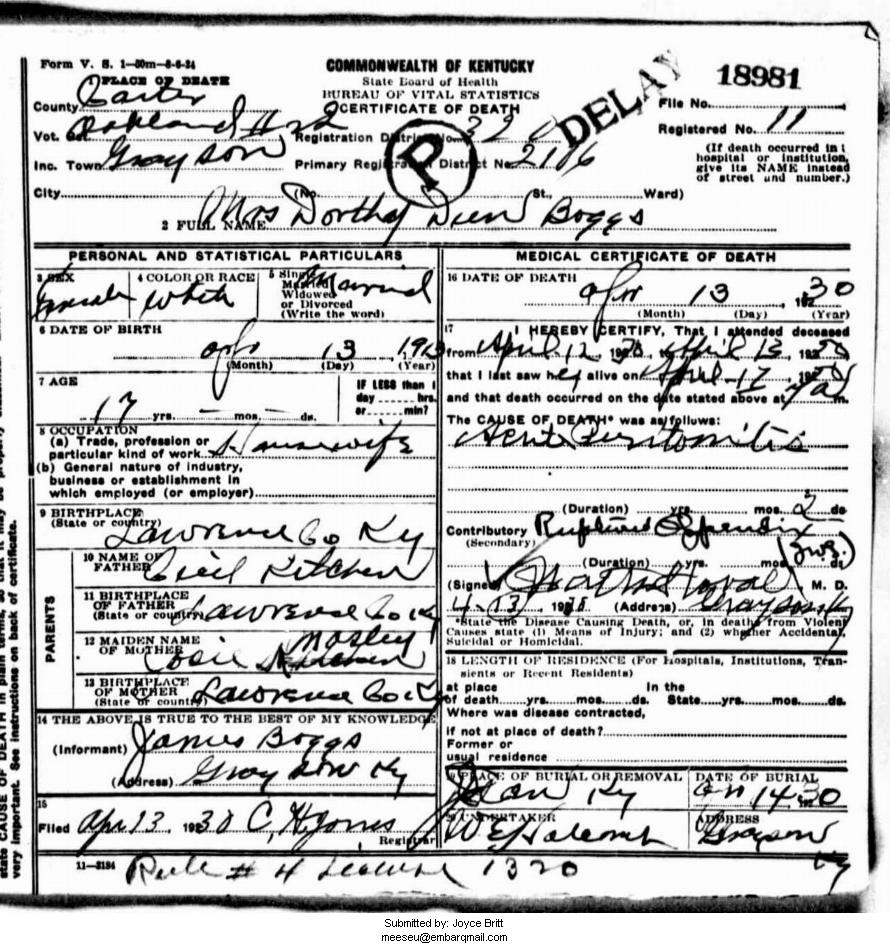 Form V. S. 1—50m—8-6-24
1 PLACE OF DEATH
County Carter
Vot. Oakland # 22
Inc. Town Grayson
City (No. St., Ward)
COMMONWEALTH OF KENTUCKY
State Board of Health
BUREAU OF VITAL STATISTICS
CERTIFICATE OF DEATH
Registration District No.
Primary Registration District No. 2116
P
DELAY
18981
File No.
Registered No. 11
(If death occurred in a hospital or institution, give its NAME instead of street and number.)
2 FULL NAME Mrs Dorthy Boggs
PERSONAL AND STATISTICAL PARTICULARS
3 SEX Female
4 COLOR OR RACE White
5 Single Married Widowed or Divorced (Write the word) Married
6 DATE OF BIRTH
Apr 13, 1913
(Month) (Day) (Year)
7 AGE
17 yrs. — mos. — ds.
IF LESS than 1 day hrs. or min?
8 OCCUPATION
(a) Trade, profession or particular kind of work Housewife
(b) General nature of industry, business or establishment in which employed (or employer)
9 BIRTHPLACE
(State or country) Lawrence Co Ky
PARENTS
10 NAME OF FATHER Cecil Kitchen
11 BIRTHPLACE OF FATHER (State or country) Lawrence Co Ky
12 MAIDEN NAME OF MOTHER Mosley Kitchen
13 BIRTHPLACE OF MOTHER (State or country) Lawrence Co Ky
14 THE ABOVE IS TRUE TO THE BEST OF MY KNOWLEDGE
(Informant) James Boggs
(Address) Grayson Ky
15
Filed Apr 13 1930 C. H. Jones
Registrar
11—3184
Rule # 4 1320
MEDICAL CERTIFICATE OF DEATH
16 DATE OF DEATH
Apr 13, 1930
(Month) (Day) (Year)
17 I HEREBY CERTIFY, That I attended deceased
from April 12 1930 to April 13, 1930
that I last saw her alive on April 1930
and that death occurred on the date stated above at m.
The CAUSE OF DEATH* was as follows:
Acut Peritonitis
(Duration) yrs. mos. 2 ds
Contributory Ruptured Appendix
(Secondary)
(Duration) yrs. mos. ds.
(Signed) M. D.
4-13 19 (Address) Grayson Ky
*State the Disease Causing Death, or, in deaths from Violent
Causes state (1) Means of Injury; and (2) whether Accidental,
Suicidal or Homicidal.
18 LENGTH OF RESIDENCE (For Hospitals, Institutions, Tran-
sients or Recent Residents)
at place of death yrs. mos. ds. In the State yrs. mos. ds.
Where was disease contracted,
if not at place of death?
Former or
usual residence
19 PLACE OF BURIAL OR REMOVAL Ky
DATE OF BURIAL 14 1930
20 UNDERTAKER
ADDRESS Grayson Ky
Submitted by: Joyce Britt
meeseu@embarqmail.com